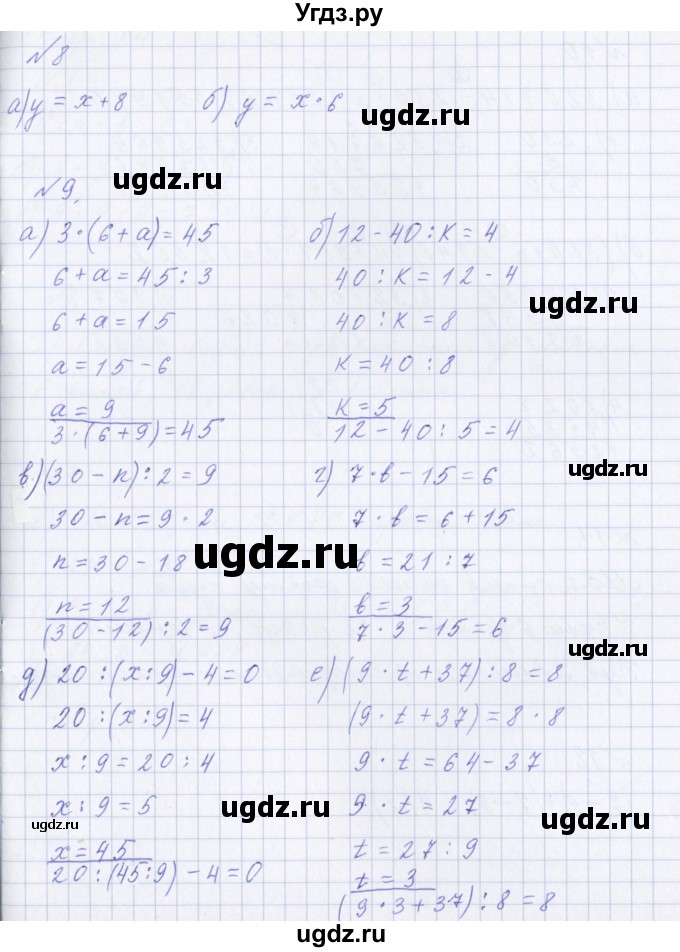 Угдз.ру
№8
а) y = x + 8 б) y = x · 6
ugdz.ru
ugdz.ru
№9.
а) 3 · (6 + a) = 45 б) 12 - 40 : К = 4
6 + a = 45 : 3 40 : К = 12 - 4
ugdz.ru
6 + a = 15 40 : К = 8
a = 15 - 6 К = 40 : 8
a = 9 К = 5
3 · (6 + 9) = 45 12 - 40 : 5 = 4
в) (30 - n) : 2 = 9 г) 7 · в - 15 = 6
ugdz.ru
30 - n = 9 · 2 7 · в = 6 + 15
n = 30 - 18 в = 21 : 7
ugdz.ru
n = 12 в = 3
(30 - 12) : 2 = 9 7 · 3 - 15 = 6
ugdz.ru
д) 20 : (x : 9) - 4 = 0 е) (9 · t + 37) : 8 = 8
20 : (x : 9) = 4 (9 · t + 37) = 8 · 8
x : 9 = 20 : 4 9 · t = 64 - 37
x : 9 = 5 9 · t = 27
ugdz.ru
ugdz.ru
ugdz.ru
x = 45 t = 27 : 9
20 : (45 : 9) - 4 = 0 t = 3
(9 · 3 + 37) : 8 = 8